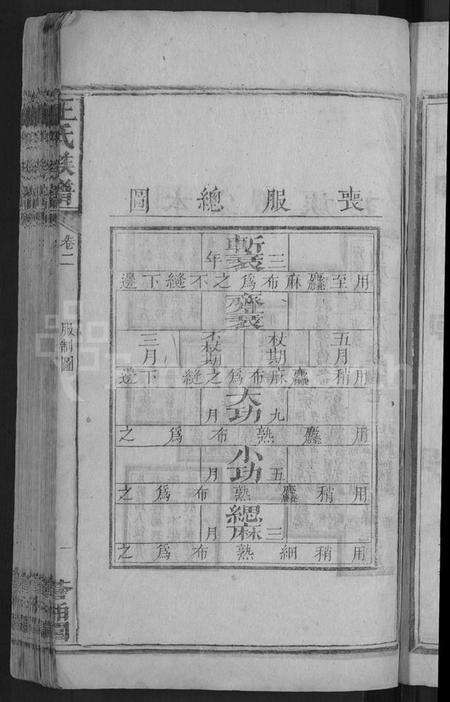 王氏族譜
卷二
服制圖
一
喪服總圖
斬衰
三年
用至麤麻布為之不縫下邊
齊衰
五月
杖期
不杖期
三月
用稍麤麻布為之縫下邊
大功
九月
用麤熟布為之
小功
五月
用稍麤熟布為之
緦麻
三月
用稍細熟布為之